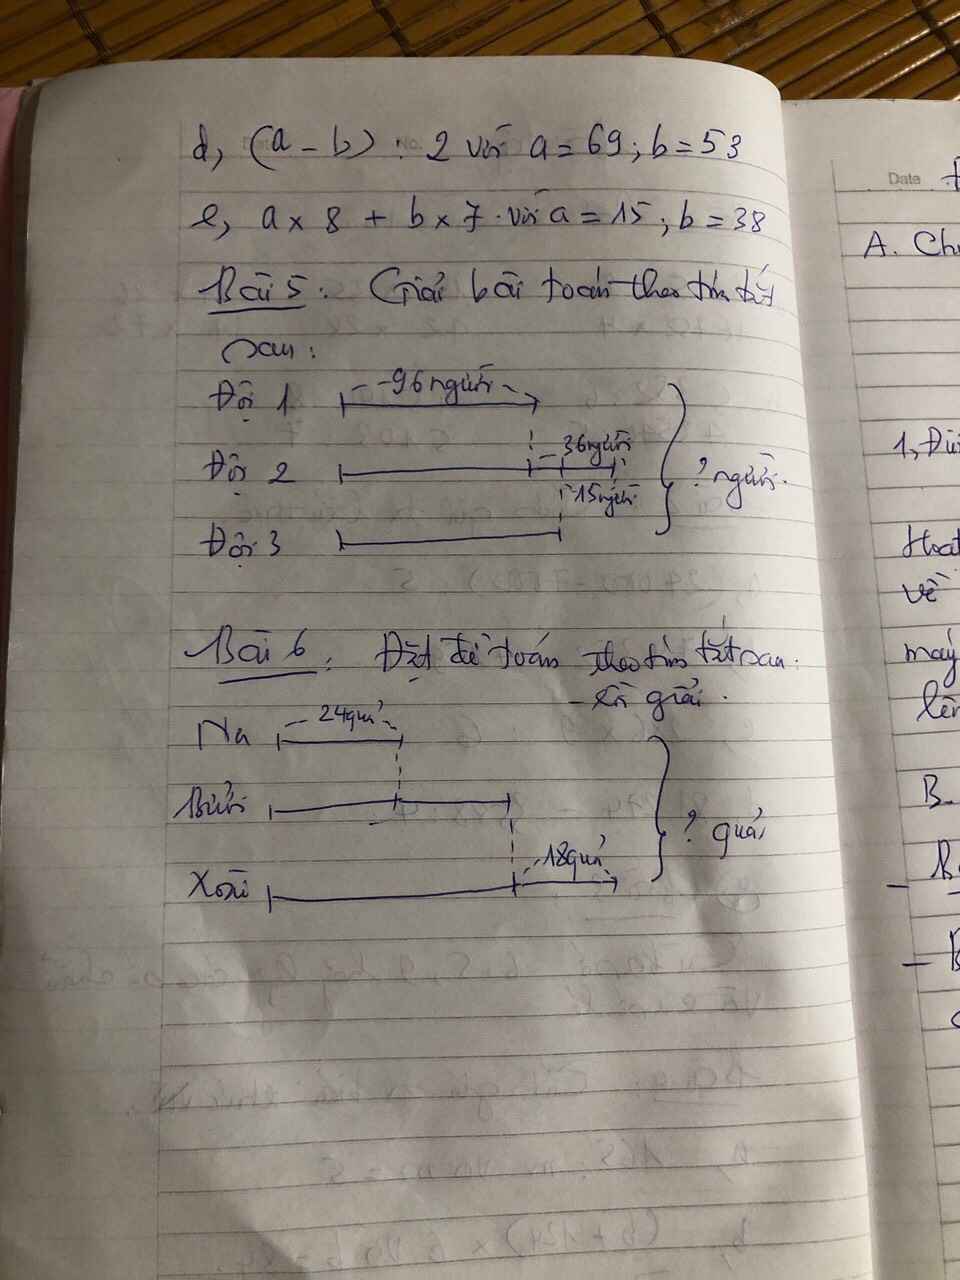 d, (a - b) : 2 với a = 69 ; b = 53
e, a x 8 + b x 7 với a = 15 ; b = 38
Bài 5 : Giải bài toán theo tóm tắt
sau :
Đội 1 96 người
Đội 2 36 người
15 người
? người.
Đội 3
Bài 6 : Đặt đề toán theo tóm tắt sau :
- rồi giải .
Na 24 quả
Bưởi
? quả
Xoài 18 quả
Date
A.
1,
Hoạt
về
máy
lên
B.